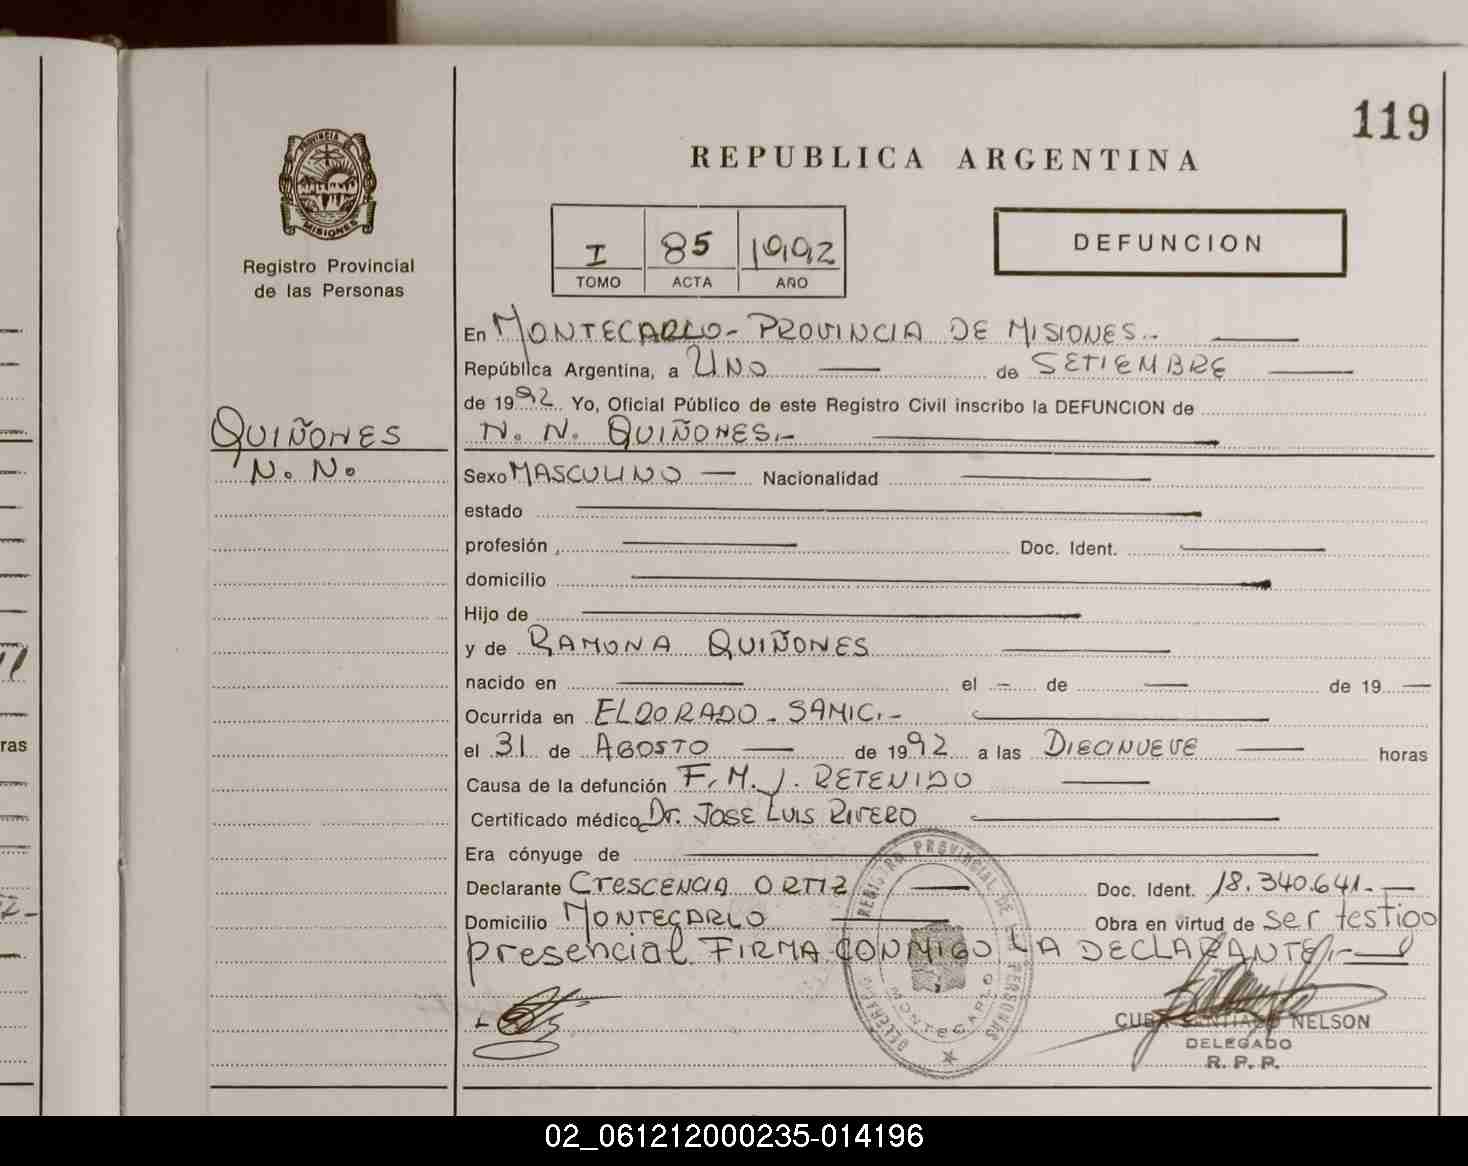 119
PROVINCIA
MISIONES
Registro Provincial
de las Personas
REPUBLICA ARGENTINA
I 85 1992
TOMO ACTA AÑO
DEFUNCION
En MONTECARLO - PROVINCIA DE MISIONES.-
República Argentina, a UNO de SETIEMBRE
de 1992 Yo, Oficial Público de este Registro Civil inscribo la DEFUNCION de
QUIÑONES
N. N.
N. N. QUIÑONES.-
Sexo MASCULINO Nacionalidad
estado
profesión Doc. Ident.
domicilio
Hijo de
y de RAMONA QUIÑONES
nacido en el - de de 19
Ocurrida en ELDORADO - SAMIC.-
el 31 de AGOSTO de 1992 a las DIECINUEVE horas
Causa de la defunción F. M. J. RETENIDO
Certificado médico Dr. JOSE LUIS RIVERO
Era cónyuge de
Declarante CRESCENCIA ORTIZ Doc. Ident. 18.340.641.-
Domicilio MONTECARLO Obra en virtud de ser testigo
presencial FIRMA CONMIGO LA DECLARANTE.-
REGISTRO PROVINCIAL DE LAS PERSONAS
MONTECARLO
NELSON
DELEGADO
R. P. P.
ras
02_061212000235-014196